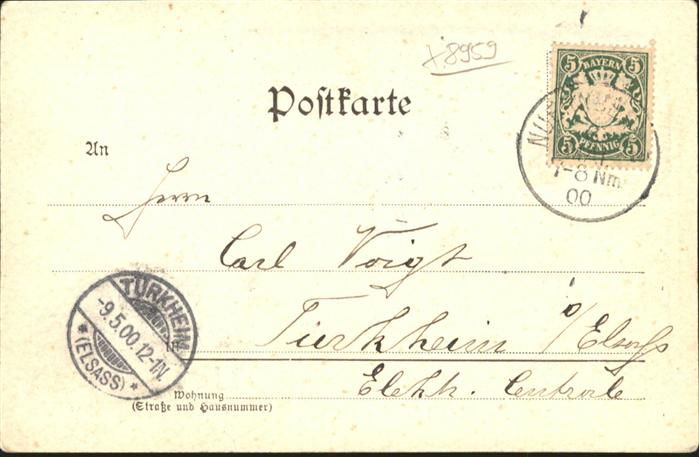 x8959
5 BAYERN 5
5 PFENNIG 5
7-8 Nm
00
Postkarte
An
Herrn
Carl Voigt
Türkheim
TÜRKHEIM
-9.5.00.12-1N.
* (ELSASS) *
Elekk. Centrale
Wohnung
(Straße und Hausnummer)